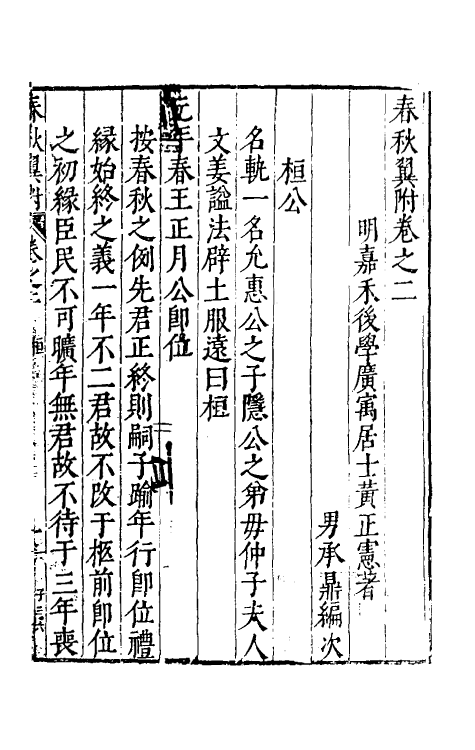 春秋翼附卷之二
明嘉禾後學廣寓居士黃正憲著
男承鼎編次
桓公
名軌一名允惠公之子隱公之弟母仲子夫人
文姜謚法辟土服遠曰桓
元年春王正月公卽位
按春秋之例先君正終則嗣子踰年行卽位禮
緣始終之義一年不二君故不改于柩前卽位
之初緣臣民不可曠年無君故不待于三年喪
春秋翼附 卷之二